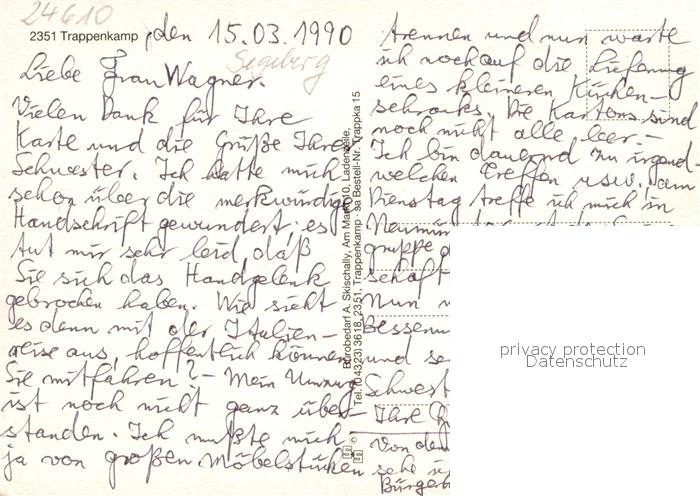 24610
2351 Trappenkamp, den 15.03.1990
Segeberg
Liebe Frau Wagner.
Vielen Dank für Ihre
Karte und die Grüße Ihrer
Schwester. Ich hatte mich
schon über die merkwürdige
Handschrift gewundert; es
tut mir sehr leid, daß
Sie sich das Handgelenk
gebrochen haben. Wie sieht
es denn mit der Italien-
reise aus, hoffentlich können
Sie mitfahren? - Mein Umzug
ist noch nicht ganz über-
standen. Ich mußte mich
ja von großen Möbelstücken
Bürobedarf A. Skischally, Am Markt 10, Ladenzeile,
Tel. (04323) 3618, 2351, Trappenkamp · sa Bestell-Nr. Trappka 15
trennen und nun warte
ich noch auf die Lieferung
eines kleineren Küchen-
schranks. Die Kartons sind
noch nicht alle leer. -
Ich bin dauernd zu irgend-
welchen Treffen usw. am
Dienstag treffe ich mich in
Neumün
gruppe
schaft
Nun
Besseru
und se
Schwest
Ihre
Von dem
sehe
Bürger
privacy protection
Datenschutz